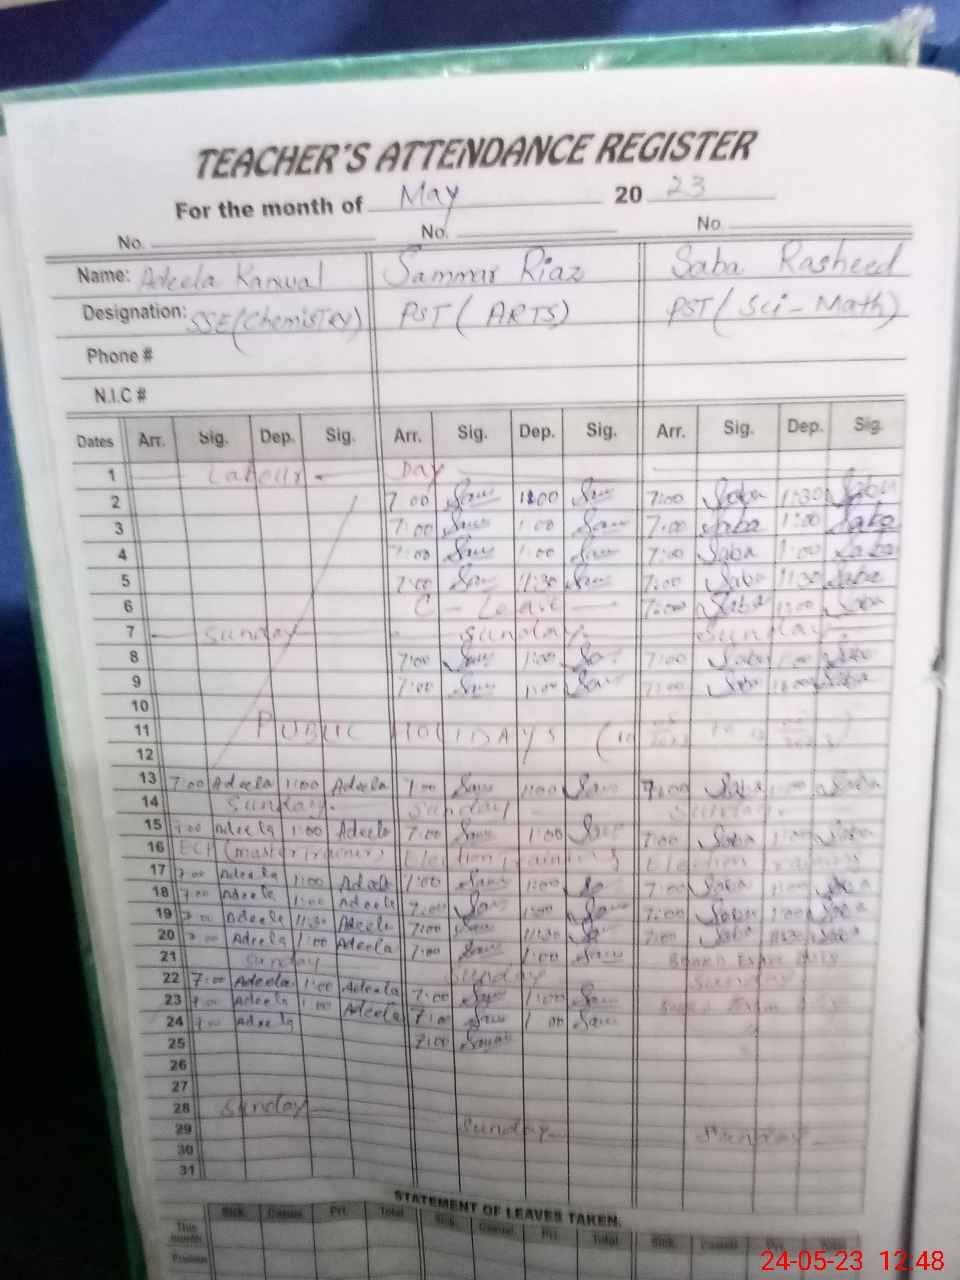 TEACHER'S ATTENDANCE REGISTER
For the month of May 20 23
No. No. No.
Name: Adeela Kanwal Sammar Riaz Saba Rasheed
Designation: SSE (Chemistry) PST (ARTS) PST (Sci-Math)
Phone #
N.I.C #
Dates Arr. Sig. Dep. Sig. Arr. Sig. Dep. Sig. Arr. Sig. Dep. Sig.
1 Labour Day
2 7:00 7:00 Saba 11:30 Saba
3 7:00 1:00 7:00 Saba 1:00 Saba
4 7:00 1:00 7:00 Saba 1:00 Saba
5 7:00 11:30 7:00 Saba 11:30 Saba
6 C - Leave 7:00 Saba 1:00 Saba
7 Sunday Sunday Sunday
8 7:00 1:00 7:00 Saba 1:00 Saba
9 7:00 1:00 7:00 Saba 1:00 Saba
10
11 PUBLIC HOLIDAYS
12
13 7:00 Adeela 1:00 Adeela 7:00 1:00 7:00 Saba 1:00 Saba
14 Sunday. Sunday Sunday.
15 7:00 Adeela 1:00 Adeela 7:00 1:00 7:00 Saba 1:00 Saba
16 ECP (master trainer) Election training Election training
17 7:00 Adeela 1:00 Adeela 7:00 1:00 7:00 Saba 1:00 Saba
18 7:00 Adeela 1:00 Adeela 7:00 1:00 7:00 Saba 1:00 Saba
19 7:00 Adeela 11:30 Adeela 7:00 11:30 7:00 Saba 11:30 Saba
20 7:00 Adeela 1:00 Adeela 7:00 1:00 Board Exam Duty
21 Sunday Sunday Sunday
22 7:00 Adeela 1:00 Adeela 7:00 1:00 Board Exam
23 7:00 Adeela 1:00 Adeela 7:00 1:00
24 7:00 Adeela 7:00
25
26
27
28 Sunday Sunday Sunday
29
30
31
STATEMENT OF LEAVES TAKEN.
Sick. Casual Prt. Total Sick. Casual Prt. Total Sick. Casual Prt. Total
This month
24-05-23 12:48